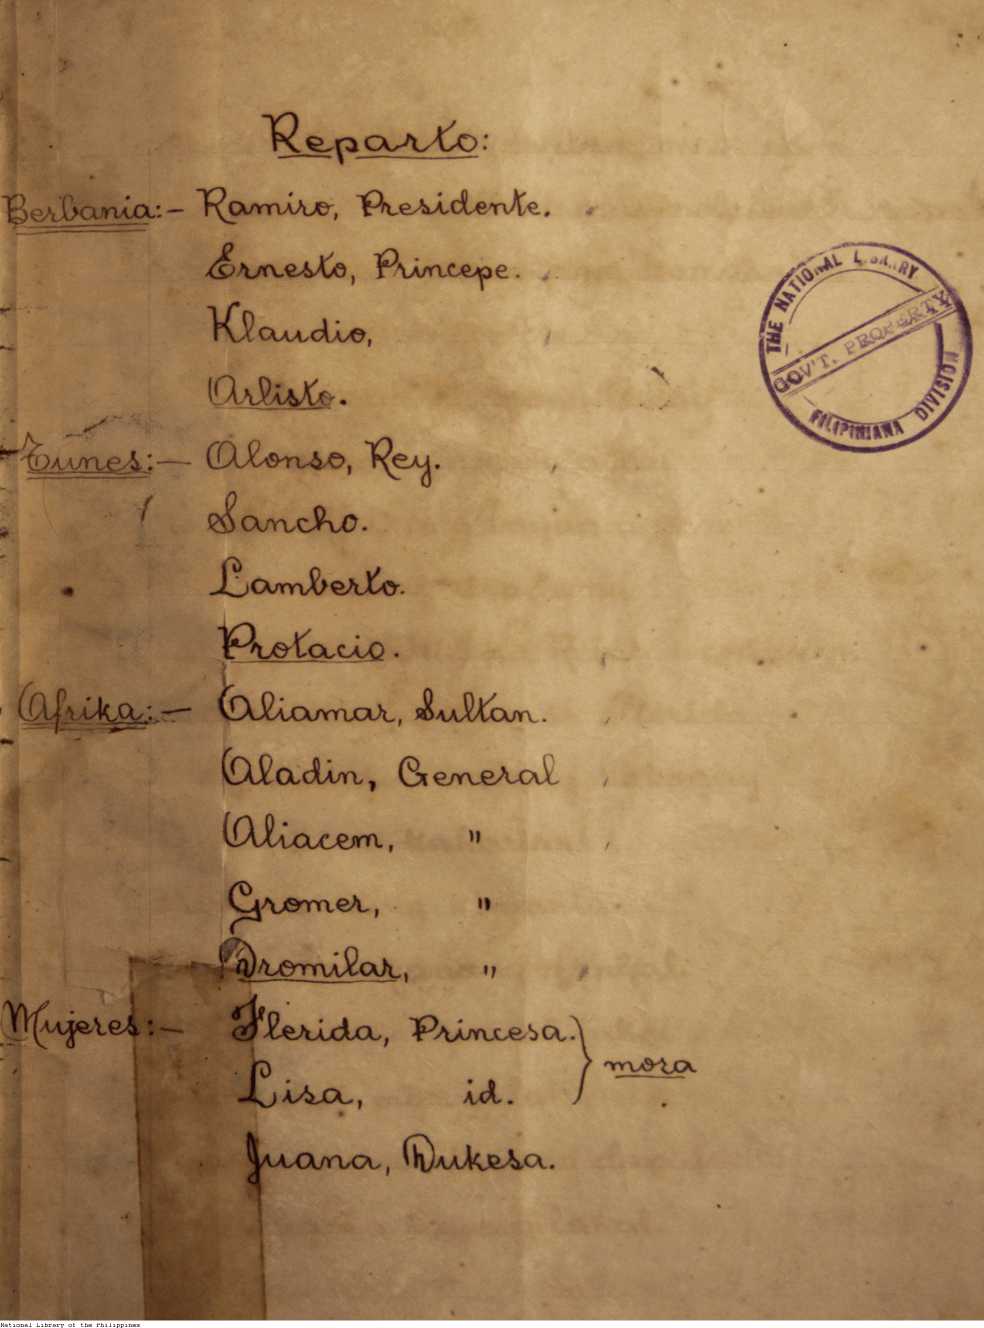 Reparto:
Berbania:- Ramiro, Presidente.
Ernesto, Princepe.
Klaudio,
Arlisto.
THE NATIONAL LIBRARY
GOV'T. PROPERTY
FILIPINIANA DIVISION
Tunes:- Alonso, Rey.
Sancho.
Lamberto.
Protacio.
Afrika:- Aliamar, Sultan.
Aladin, General
Aliacem, "
Gromer, "
Dromilar, "
Mujeres:- Flerida, Princesa. } mora
Lisa, id.
Juana, Dukesa.
National Library of the Philippines